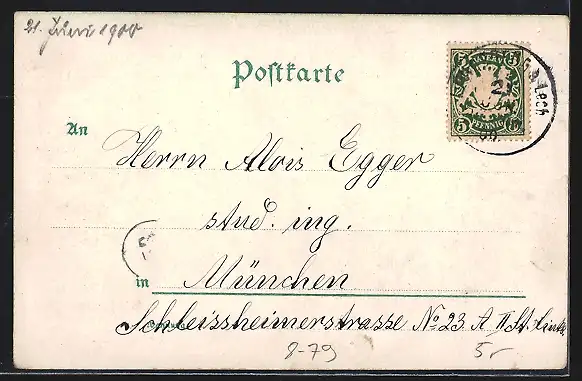 21. Juni 1900
Postkarte
5 BAYERN 5
5 PFENNIG 5
Lech
An
Herrn Alois Egger
stud. ing.
in München
Schleissheimerstrasse No 23 A II St. links
8-79
5-